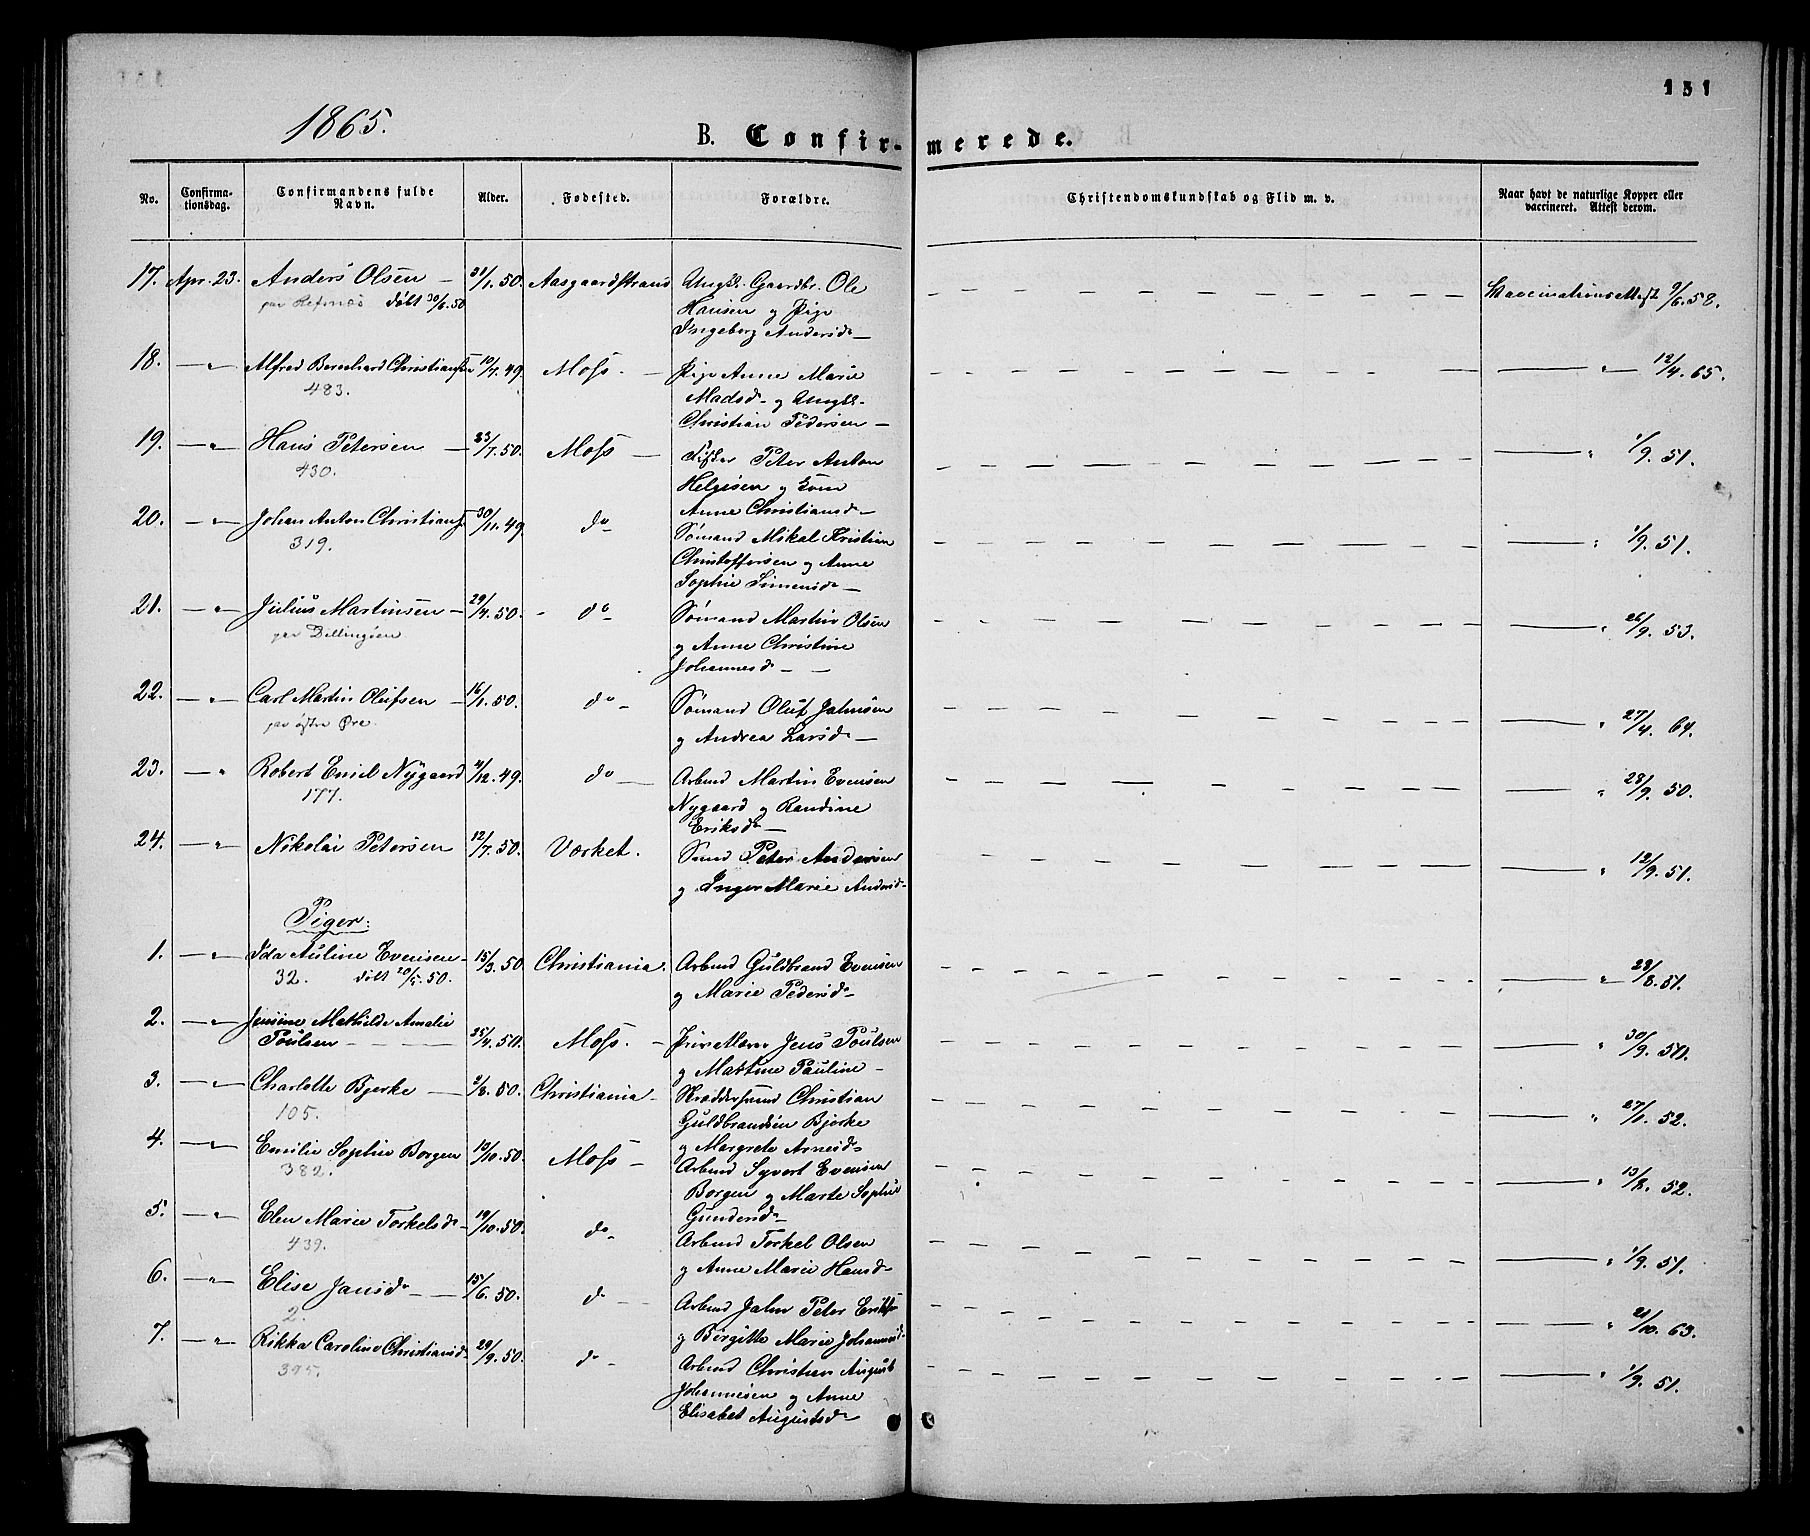 151
1865.
B. Confir-merede.
No. Confirma-tionsdag. Confirmandens fulde Navn. Alder. Fødested. Forældre. Christendomskundskab og Flid m. v. Naar havt de naturlige Kopper eller vaccineret. Attest derom.
17. Apr. 23. Anders Olsen — 31/1. 50. Aasgaardstrand Ungk. Gaardbr. Ole Vaccinationsattest 9/6. 58.
paa Refsnæs døbt 30/6. 50 Hansen og Pige
Ingeborg Andersd. —
18. — " — Alfred Bernhard Christians. 10/7. 49. Moss. — Pige Anne Marie — " — 12/4. 65.
483. Madsd. og Ungk.
Christian Pedersen —
19. — " — Hans Petersen — 23/7. 50. Moss — Fisker Peter Anton — " 1/9. 51.
430. Helgesen og Kone
Anne Christiansd. —
20. — " — Johan Anton Christians. 30/11. 49. do Sømand Mikal Kristian — " 1/9. 51.
319. Christoffersen og Anne
Sophie Simensd. —
21. — " — Julius Martinsen — 29/4. 50. - do - Sømand Martin Olsen — " 26/9. 53.
paa Dillingøen og Anne Christine
Johannesd. — —
22. — " — Carl Martin Olufsen — 16/1. 50. do - Sømand Oluf Jahnsen — " 27/4. 64.
paa østre Øre. og Andrea Larsd. —
23. — " Robert Emil Nygaard 4/12. 49. do — Arbmd Martin Evensen " 28/9. 50.
177. Nygaard og Randine
Eriksd. —
24. — " — Nikolai Petersen 12/7. 50. Værket. Smd Peter Andersen — " 12/9. 51.
og Inger Marie Andersd. -
Piger:
1. — " — Ida Auline Evensen - 15/3. 50. Christiania. Arbmd Guldbrand Evensen — " — 28/8. 51.
32. døbt 20/5. 50. og Marie Pedersd. —
2. — " — Jensine Mathilde Amalie
Poulsen — — — 25/4. 50. Moss. — Jens Poulsen — " 30/9. 50.
og Martine Pauline —
3. — " — Charlotte Bjerke — 2/8. 50. Christiania — Skrædersvend Christian — " 27/1. 52.
105. Guldbrandsen Bjerke
og Margrete Arnesd.
4. — " — Emilie Sophie Borgen 13/10. 50. Moss — Arbmd Syvert Evensen — " 13/8. 52.
382. Borgen og Marte Sophie
Gundersd. —
5. — " — Elen Marie Torkelsd. - 19/10. 50. do - Arbmd Torkel Olsen — " 1/9. 51.
439. og Anne Marie Hansd. -
6. — " — Elise Jansd. — — 15/6. 50. do — Arbmd Jahn Peter Eriks. — " 21/10. 63.
2. og Birgitte Marie Johannesd.
7. — " — Rikka Caroline Christiansd. 29/9. 50. do - Arbmd Christian August — " 1/9. 51.
395. Johannesen og Anne
Elisabet Augustsd. —